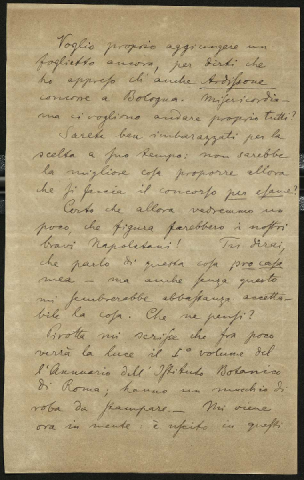 Voglio proprio aggiungere un
foglietto ancora, per dirti che
ho appreso ch'anche Ardissone
concorre a Bologna. Misericordia —
ma ci vogliono andare proprio tutti?
Sarete ben imbarazzati per la
scelta a suo tempo: non sarebbe
la migliore cosa proporre allora
che si faccia il concorso per esame?
Certo che allora vedremmo un
poco, che figura farebbero i nostri
bravi Napoletani! Tu dirai,
che parlo di questa cosa pro casa
mea — ma anche senza questo
mi sembrerebbe abbastanza accetta-
bile la cosa. Che ne pensi?
Pirotta mi scrisse che fra poco
verrà la luce il 1º volume del
l'Annuario dell'Istituto Botanico
di Roma; hanno un mucchio di
roba da stampare. — Mi viene
ora in mente è uscito in questi